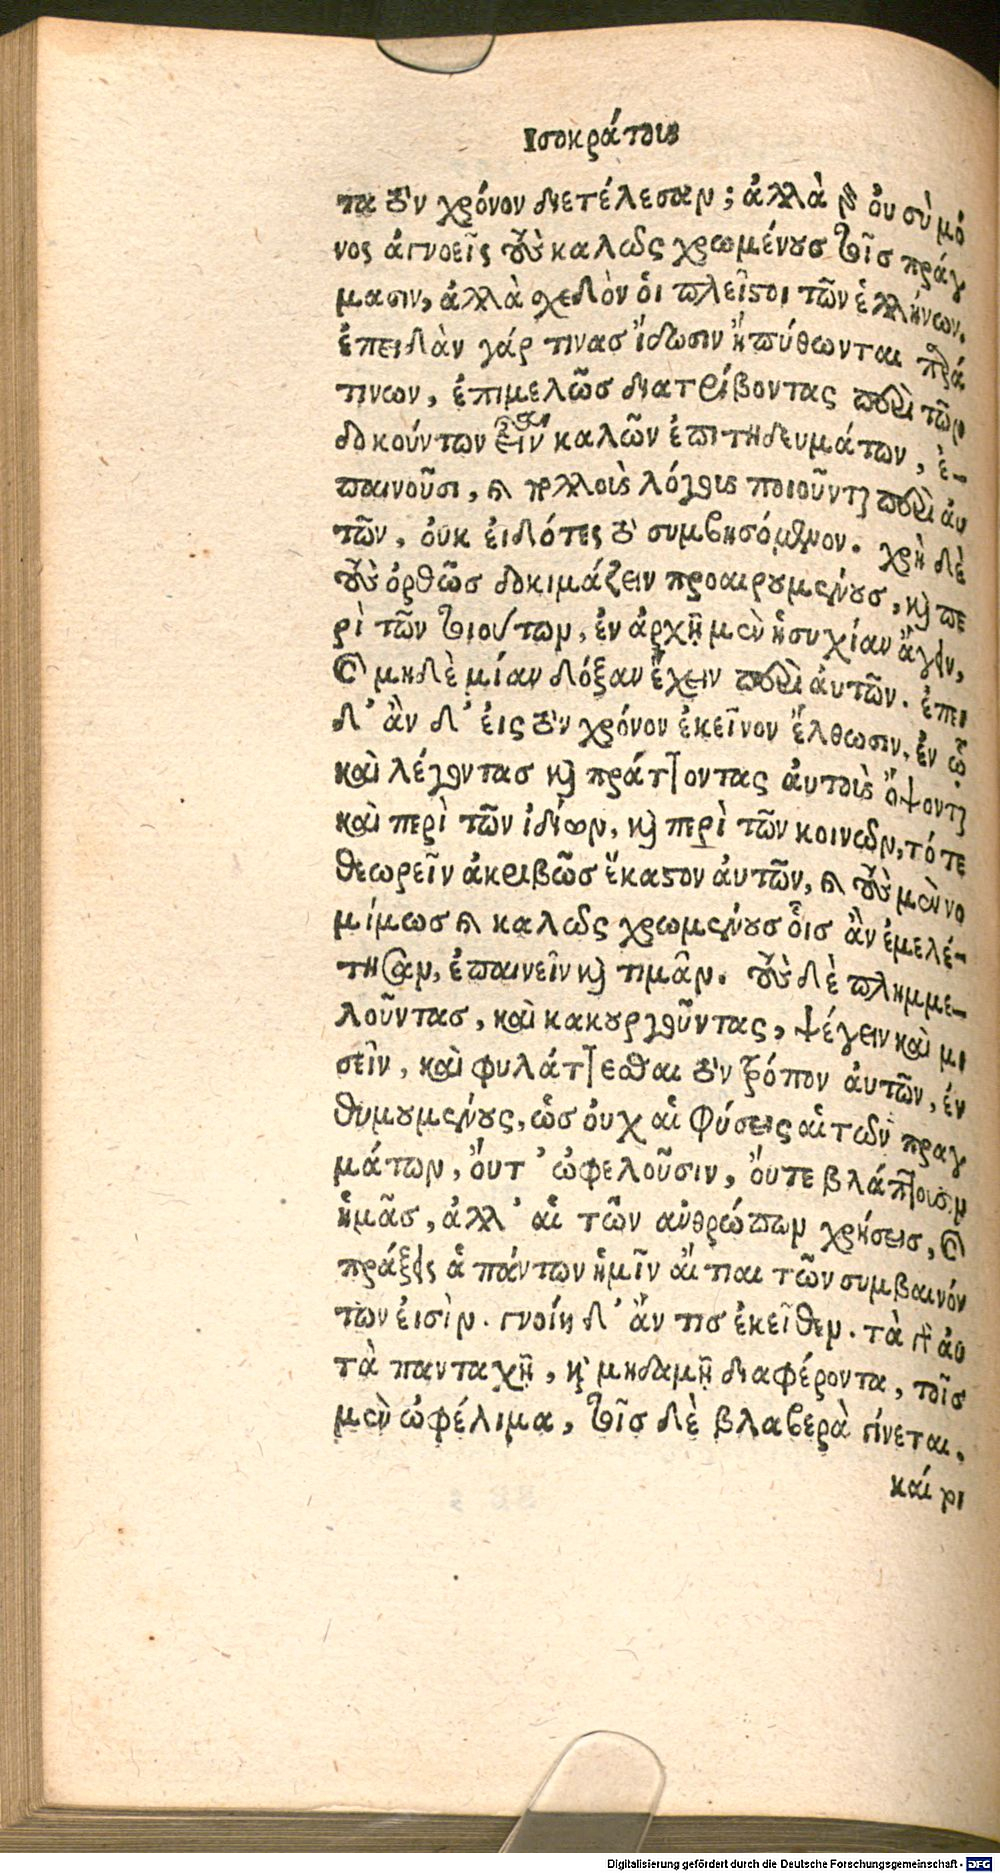 Ισοκράτους
τα τὸν χρόνον διετέλεσαν; ἀλλὰ γὰρ ὀυ σὺ μό
νος ἀγνοεῖς τοὺς καλῶς χρωμένους τοῖς πράγ
μασιν, ἀλλὰ σχεδὸν ὁι πλεῖστοι τῶν ἑλλήνων.
ἐπειδὰν γάρ τινας ἴδωσιν ἢ πύθωνται πρά
τινων, ἐπιμελῶς διατρίβοντας περὶ τῶν
δοκούντων εἶναι καλῶν ἐπιτηδευμάτων, ἐ-
παινοῦσι, καὶ πολλοὺς λόγους ποιοῦνται περὶ ἀυ
τῶν, ὀυκ ἐιδότες τὸ συμβησόμενον. χρὴ δὲ
τοὺς ὀρθῶς δοκιμάζειν προαιρουμένους, καὶ πε
ρὶ τῶν τοιούτων, ἐν ἀρχῇ μὲν ἡσυχίαν ἄγειν,
καὶ μηδὲ μίαν δόξαν ἔχειν περὶ ἀυτῶν. ἐπει
δ' ἂν δ' ἐις τὸν χρόνον ἐκεῖνον ἔλθωσιν, ἐν ᾧ
καὶ λέγοντας καὶ πράττοντας ἀυτοὺς ὄψονται
καὶ περὶ τῶν ἰδίων, καὶ περὶ τῶν κοινῶν, τότε
θεωρεῖν ἀκριβῶς ἕκαστον ἀυτῶν, καὶ τοὺς μὲν νο
μίμως καὶ καλῶς χρωμένους οἷς ἂν ἐμελέ-
τησαν, ἐπαινεῖν καὶ τιμᾶν. τοὺς δὲ πλημμε-
λοῦντας, καὶ κακουργοῦντας, ψέγειν καὶ μι
σεῖν, καὶ φυλάττεσθαι τὸν τρόπον ἀυτῶν, ἐν
θυμουμένους, ὡς ὀυχ αἱ φύσεις αἱ τῶν πραγ
μάτων, ὄυτ' ὠφελοῦσιν, ὄυτε βλάπτουσιν
ἡμᾶς, ἀλλ' αἱ τῶν ἀνθρώπων χρήσεις, καὶ
πράξεις ἁπάντων ἡμῖν ἄιτιαι τῶν συμβαινόν
των ἐισὶν. γνοίη δ' ἄν τις ἐκεῖθεν. τὰ γὰρ ἀυ
τὰ πανταχῇ, καὶ μηδαμῇ διαφέροντα, τοῖς
μὲν ὠφέλιμα, τοῖς δὲ βλαβερὰ γίνεται.
καί ρι